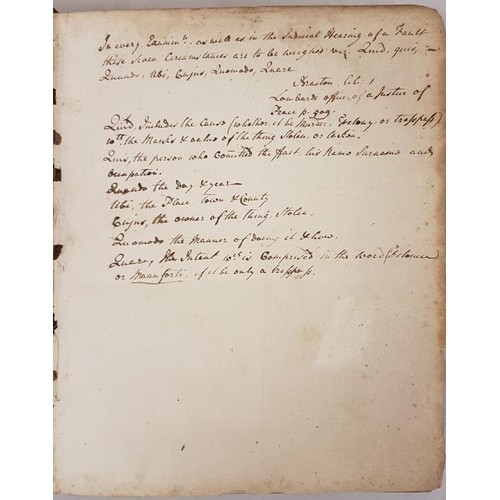 In every Examin.n, as well as in the Judicial Hearing of a Fault
these Seven Circumstances are to be weighed viz. Quid, quis,
Quando, Ubi, Cujus, Quomodo, Quare
Bracton, lib. 1
Lombards office of a Justice of
Peace p.
Quid, Includes the Cause (whether it be Murder, Felony, or trespass)
wth. the Marks & value of the thing Stolen, or taken.
Quis, the person who Comitted the Fact, his Name Surname and
Occupation.
Quando the day & year
Ubi, the Place, town & County
Cujus, the owner of the thing Stolen.
Quomodo the Manner of doing it & how.
Quare, the Intent wch. is Comprised in the word (
or , if it be only a trespass.